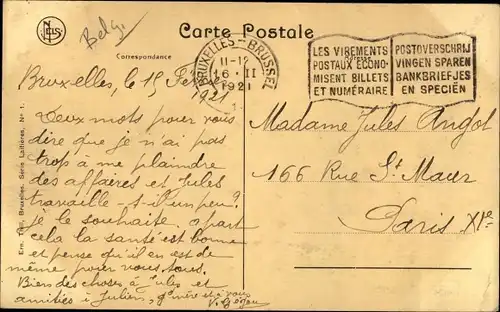 NELS
Belg.
Carte Postale
Correspondance
BRUXELLES - BRUSSEL
11-12
16 II
1921
LES VIREMENTS
POSTAUX ÉCONO-
MISENT BILLETS
ET NUMÉRAIRE
POSTOVERSCHRIJ
VINGEN SPAREN
BANKBRIEFJES
EN SPECIËN
Bruxelles, le 15 Février
1921
Deux mots pour vous
dire que je n'ai pas
trop à me plaindre
des affaires et Jules
travaille-t-il un peu?
je le souhaite. a part
cela la santé est bonne
et pense qu'il en est de
même pour vous tous.
Bien des choses à Jules et
amitiés à Julien, g'mère et à vous
Madame Jules Angot
166 Rue St Maur
Paris XIe
Ern. Thill, Bruxelles. Série Laitières, No 1.